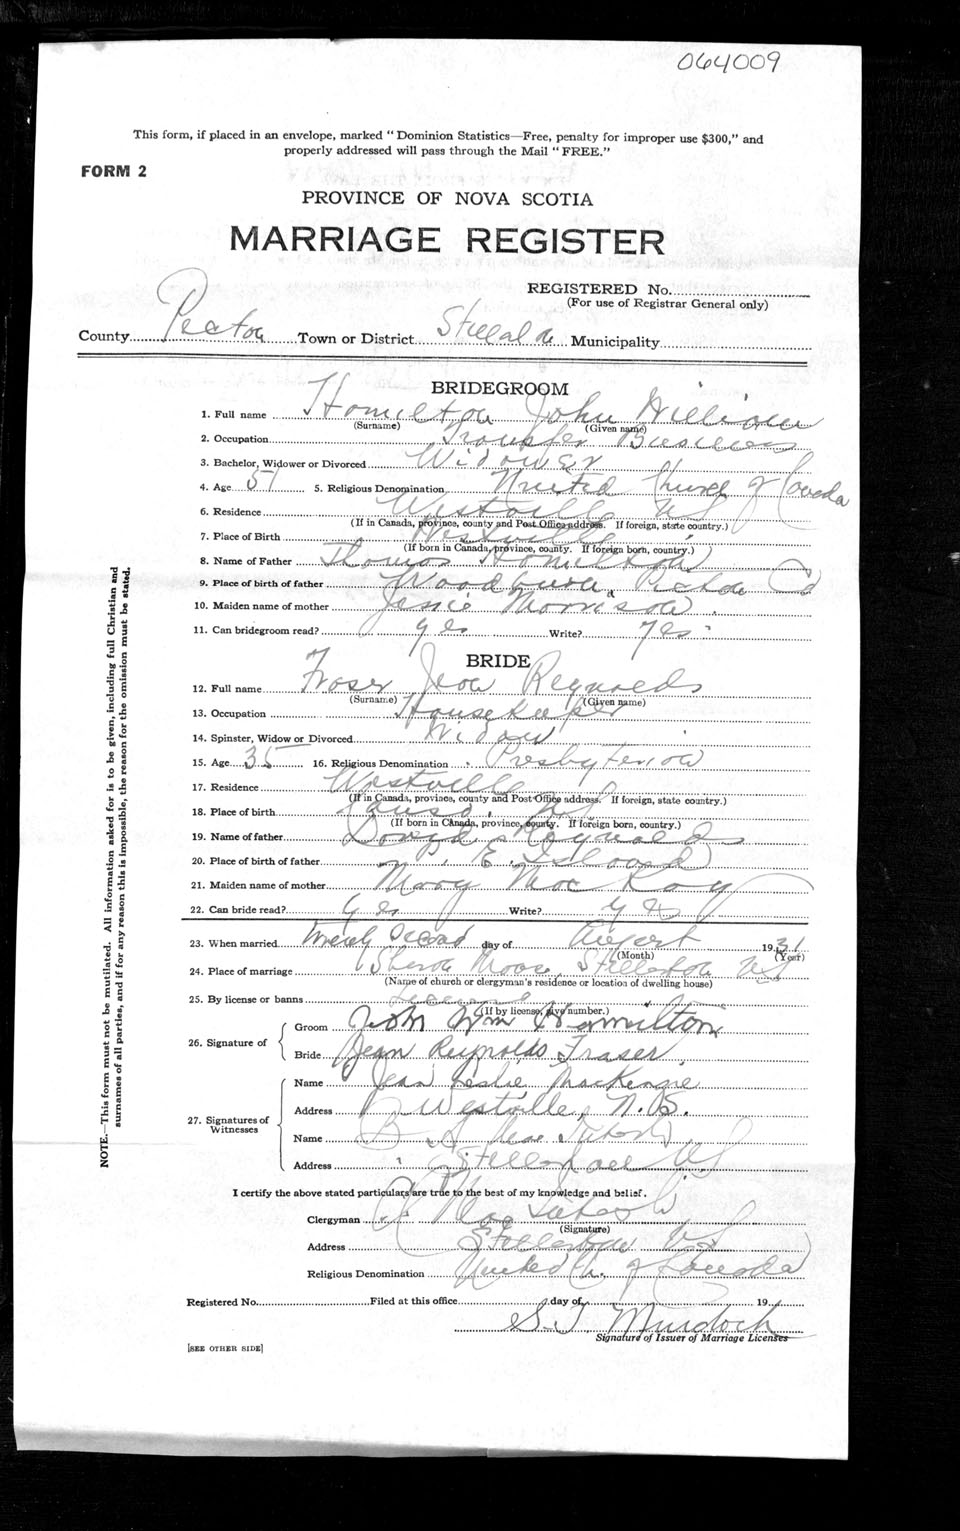 064009
This form, if placed in an envelope, marked "Dominion Statistics—Free, penalty for improper use $300," and
properly addressed will pass through the Mail "FREE."
FORM 2
PROVINCE OF NOVA SCOTIA
MARRIAGE REGISTER
REGISTERED No.
(For use of Registrar General only)
County Pictou Town or District Municipality
BRIDEGROOM
1. Full name Hamilton John William
(Surname) (Given name)
2. Occupation Transfer Business
3. Bachelor, Widower or Divorced Widower
4. Age 51 5. Religious Denomination United Church of Canada
6. Residence Westville NS
(If in Canada, province, county and Post Office address. If foreign, state country.)
7. Place of Birth Westville
(If born in Canada, province, county. If foreign born, country.)
8. Name of Father Thomas Hamilton
9. Place of birth of father Woodburn Pictou Co
10. Maiden name of mother Jessie Morrison
11. Can bridegroom read? yes Write? yes
BRIDE
12. Full name Fraser Jean Reynolds
(Surname) (Given name)
13. Occupation Housekeeper
14. Spinster, Widow or Divorced Widow
15. Age 35 16. Religious Denomination Presbyterian
17. Residence Westville
(If in Canada, province, county and Post Office address. If foreign, state country.)
18. Place of birth Canso
(If born in Canada, province, county. If foreign born, country.)
19. Name of father Reynolds
20. Place of birth of father P. E. Island
21. Maiden name of mother Mary MacKay
22. Can bride read? yes Write? yes
23. When married Twenty Second day of August 1931
(Month) (Year)
24. Place of marriage Sharon Manse, Stellarton NS
(Name of church or clergyman's residence or location of dwelling house)
25. By license or banns License
(If by license, give number.)
26. Signature of
Groom John Wm Hamilton
Bride Jean Reynolds Fraser
27. Signatures of
Witnesses
Name Jean Leslie MacKenzie
Address Westville, N.S.
Name B
Address Stellarton NS
I certify the above stated particulars are true to the best of my knowledge and belief.
Clergyman
(Signature)
Address Stellarton NS
Religious Denomination United Ch. of Canada
Registered No. Filed at this office day of 19
S. T. Murdoch
Signature of Issuer of Marriage Licenses
[SEE OTHER SIDE]
NOTE.—This form must not be mutilated. All information asked for is to be given, including full Christian and
surnames of all parties, and if for any reason this is impossible, the reason for the omission must be stated.